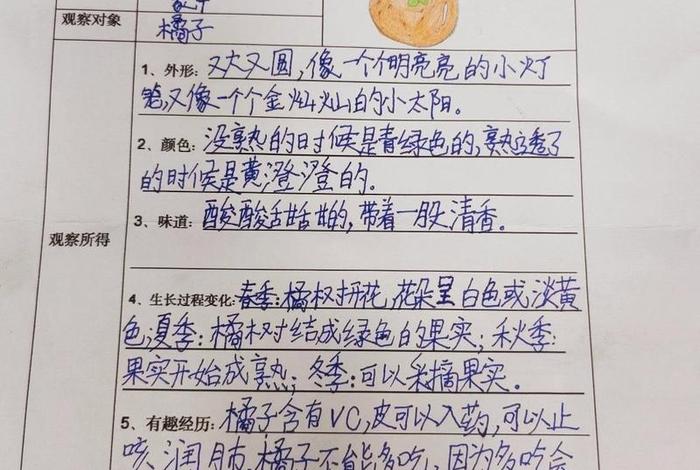 观察对象
橘子
1、外形：又大又圆，像一个个明亮亮的小灯
笼，又像一个个金灿灿的小太阳。
2、颜色：没熟的时候是青绿色的，熟透了
的时候是黄澄澄的。
3、味道：酸酸甜甜的，带着一股清香。
观察所得
4、生长过程变化：春季：橘树开花，花朵呈白色或淡黄
色；夏季：橘树结成绿色的果实；秋季：
果实开始成熟；冬季：可以采摘果实。
5、有趣经历：橘子含有VC，皮可以入药，可以止
咳、润肺。橘子不能多吃，因为多吃会